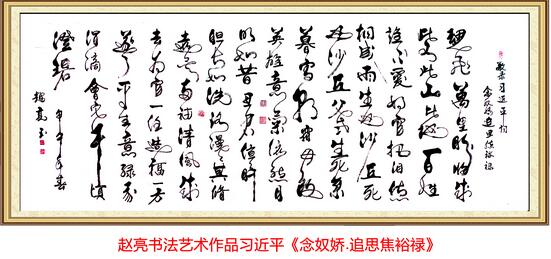 敬录习近平词
念奴娇追思焦裕禄
魂飞万里盼归来
此水此山此地百姓
谁不爱好官把泪焦
桐成雨生也沙丘死
也沙丘父老生死系
暮雪朝霜毋改
英雄意气依然月
明如昔思君夜夜
肝胆长如洗路漫漫其修
远矣两袖清风来
去为官一任造福一方
遂了平生意绿我
涓滴会它千顷
澄碧
甲午年春
赵亮书
赵亮书法艺术作品习近平《念奴娇.追思焦裕禄》